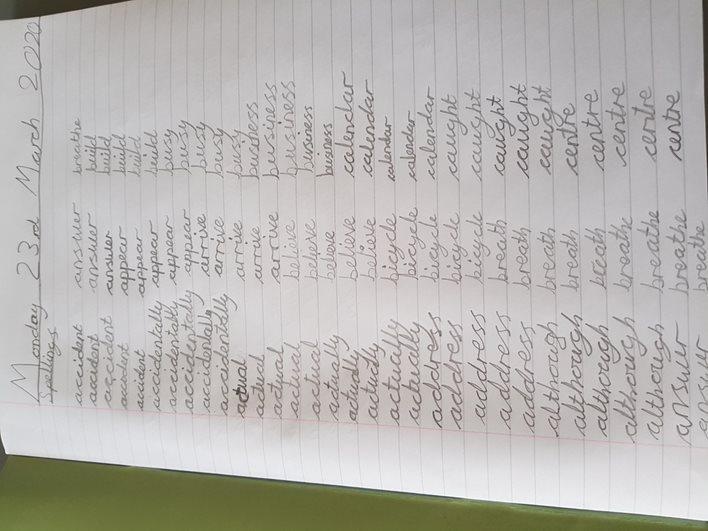 Monday 23rd March 2020
Spellings
accident answer breathe
accident answer build
accident answer build
accident appear build
accident appear build
accidentally appear build
accidentally appear busy
accidentally appear busy
accidentally arrive busy
accidentally arrive busy
actual arrive busy
actual arrive business
actual arrive business
actual believe business
actual believe business
actual believe business
actually believe calendar
actually believe calendar
actually bicycle calendar
actually bicycle calendar
address bicycle calendar
address bicycle caught
address bicycle caught
address breath caught
address breath caught
although breath caught
although breath centre
although breath centre
although breathe centre
although breathe centre
answer breathe centre
answer breathe